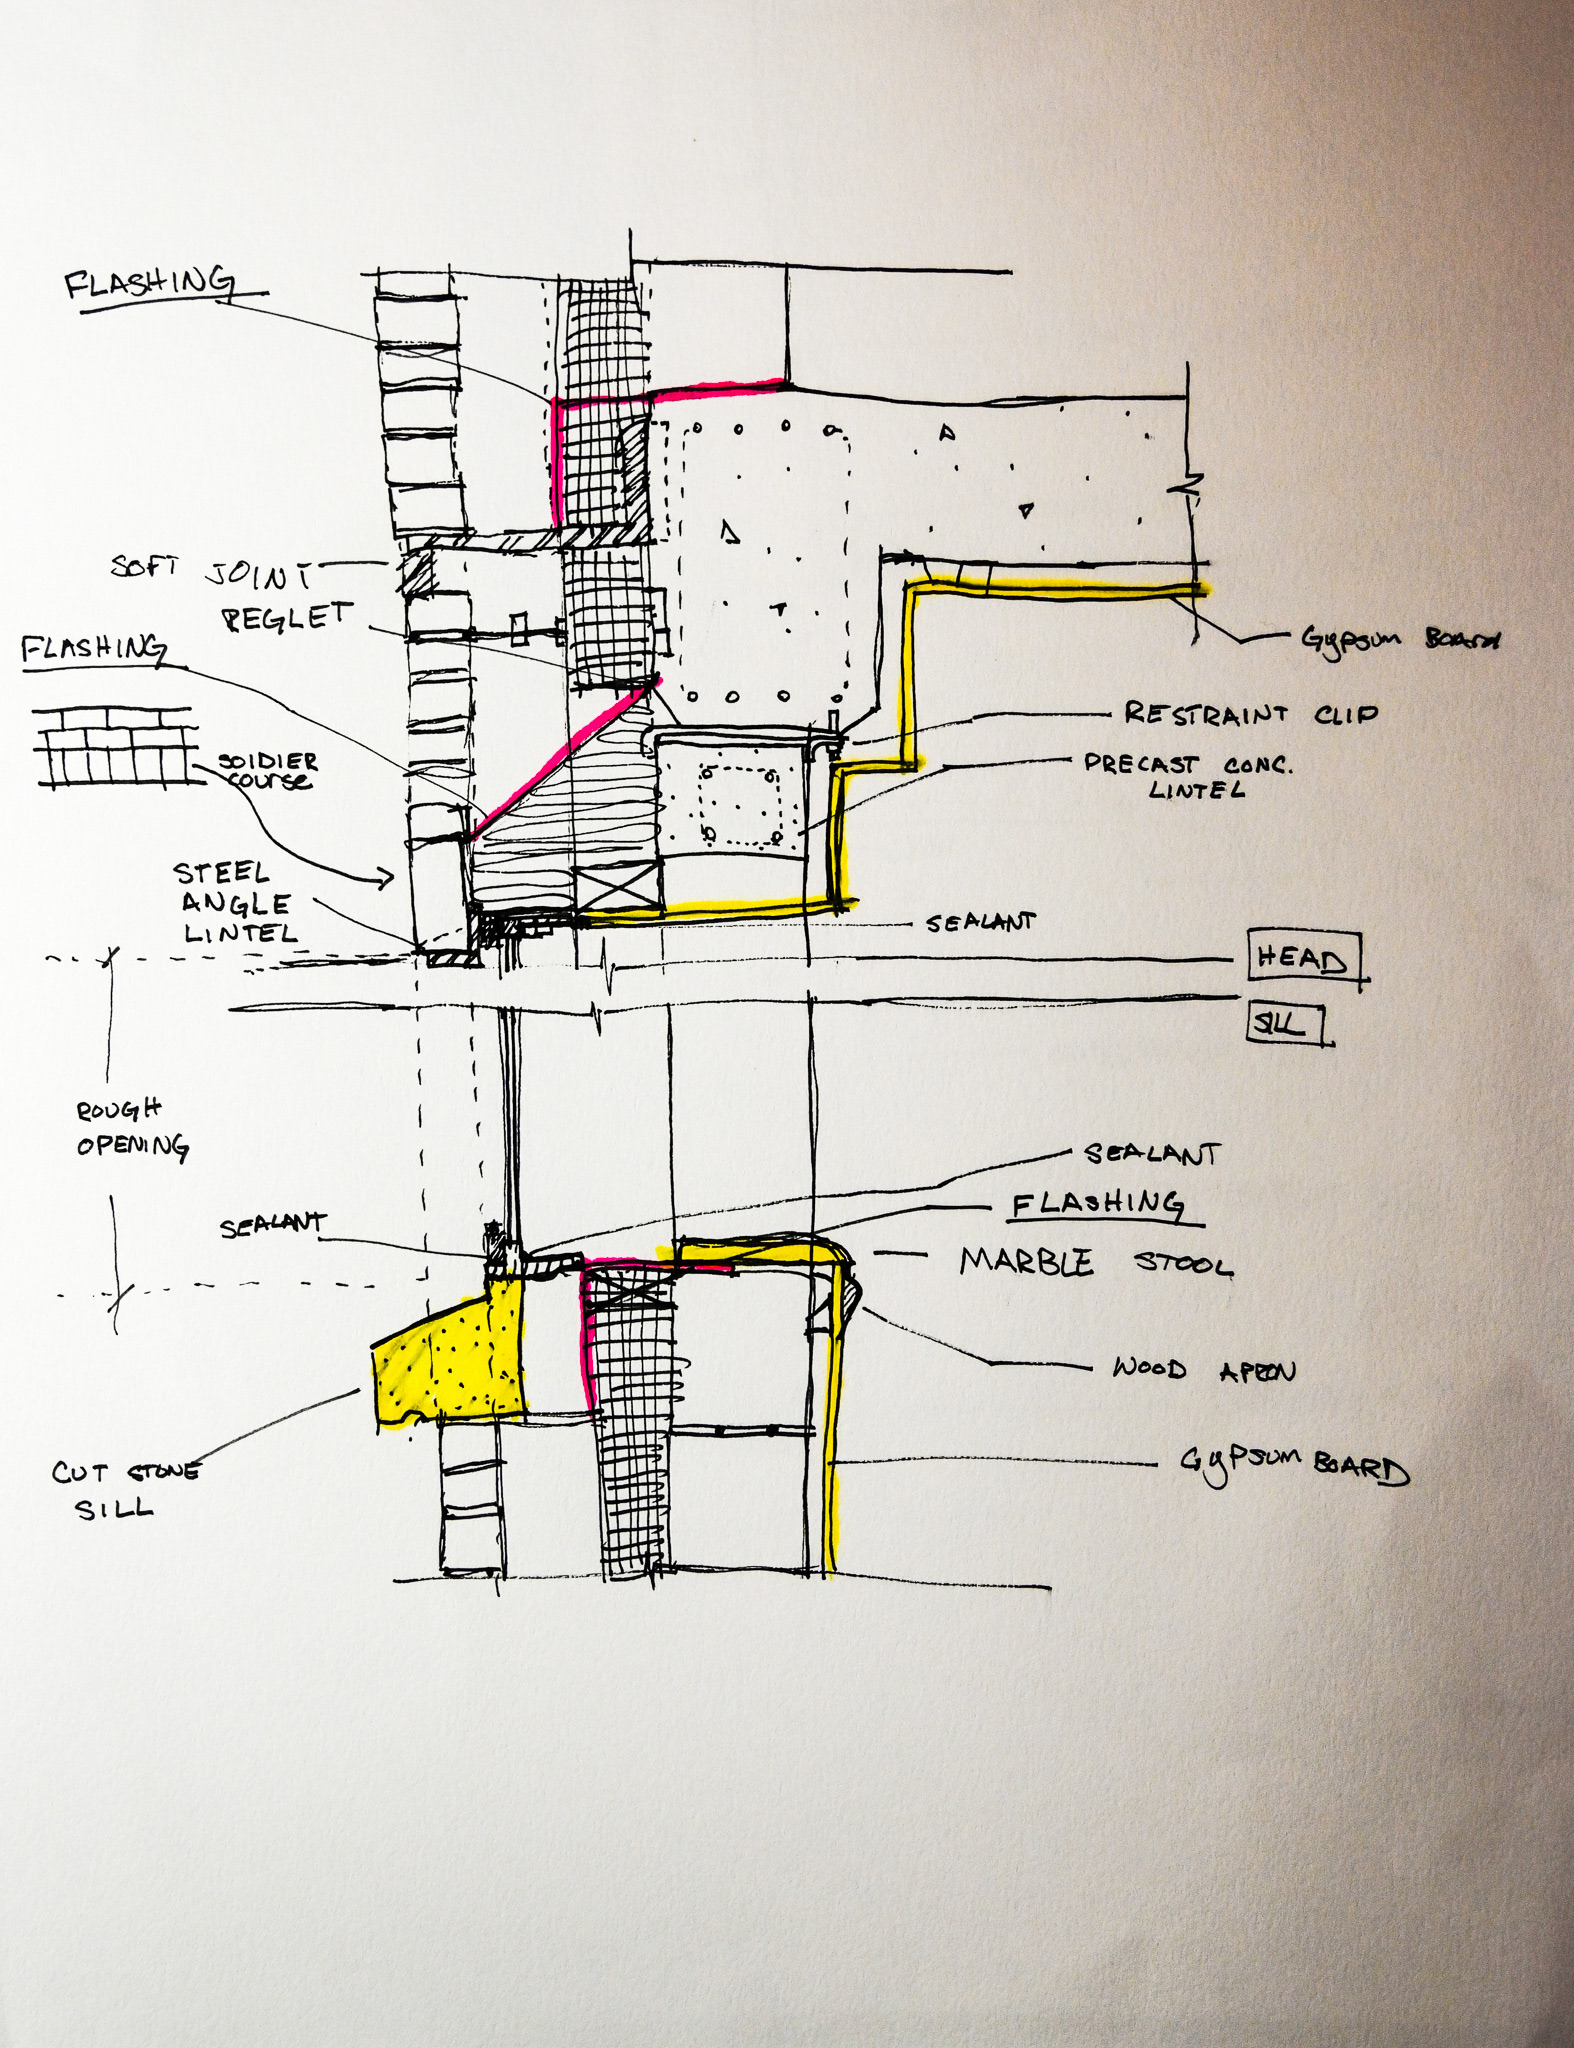 FLASHING
SOFT JOINT
REGLET
FLASHING
SOLDIER
COURSE
STEEL
ANGLE
LINTEL
GYPSUM BOARD
RESTRAINT CLIP
PRECAST CONC.
LINTEL
SEALANT
HEAD
SILL
ROUGH
OPENING
SEALANT
SEALANT
FLASHING
MARBLE STOOL
WOOD APRON
CUT STONE
SILL
GYPSUM BOARD